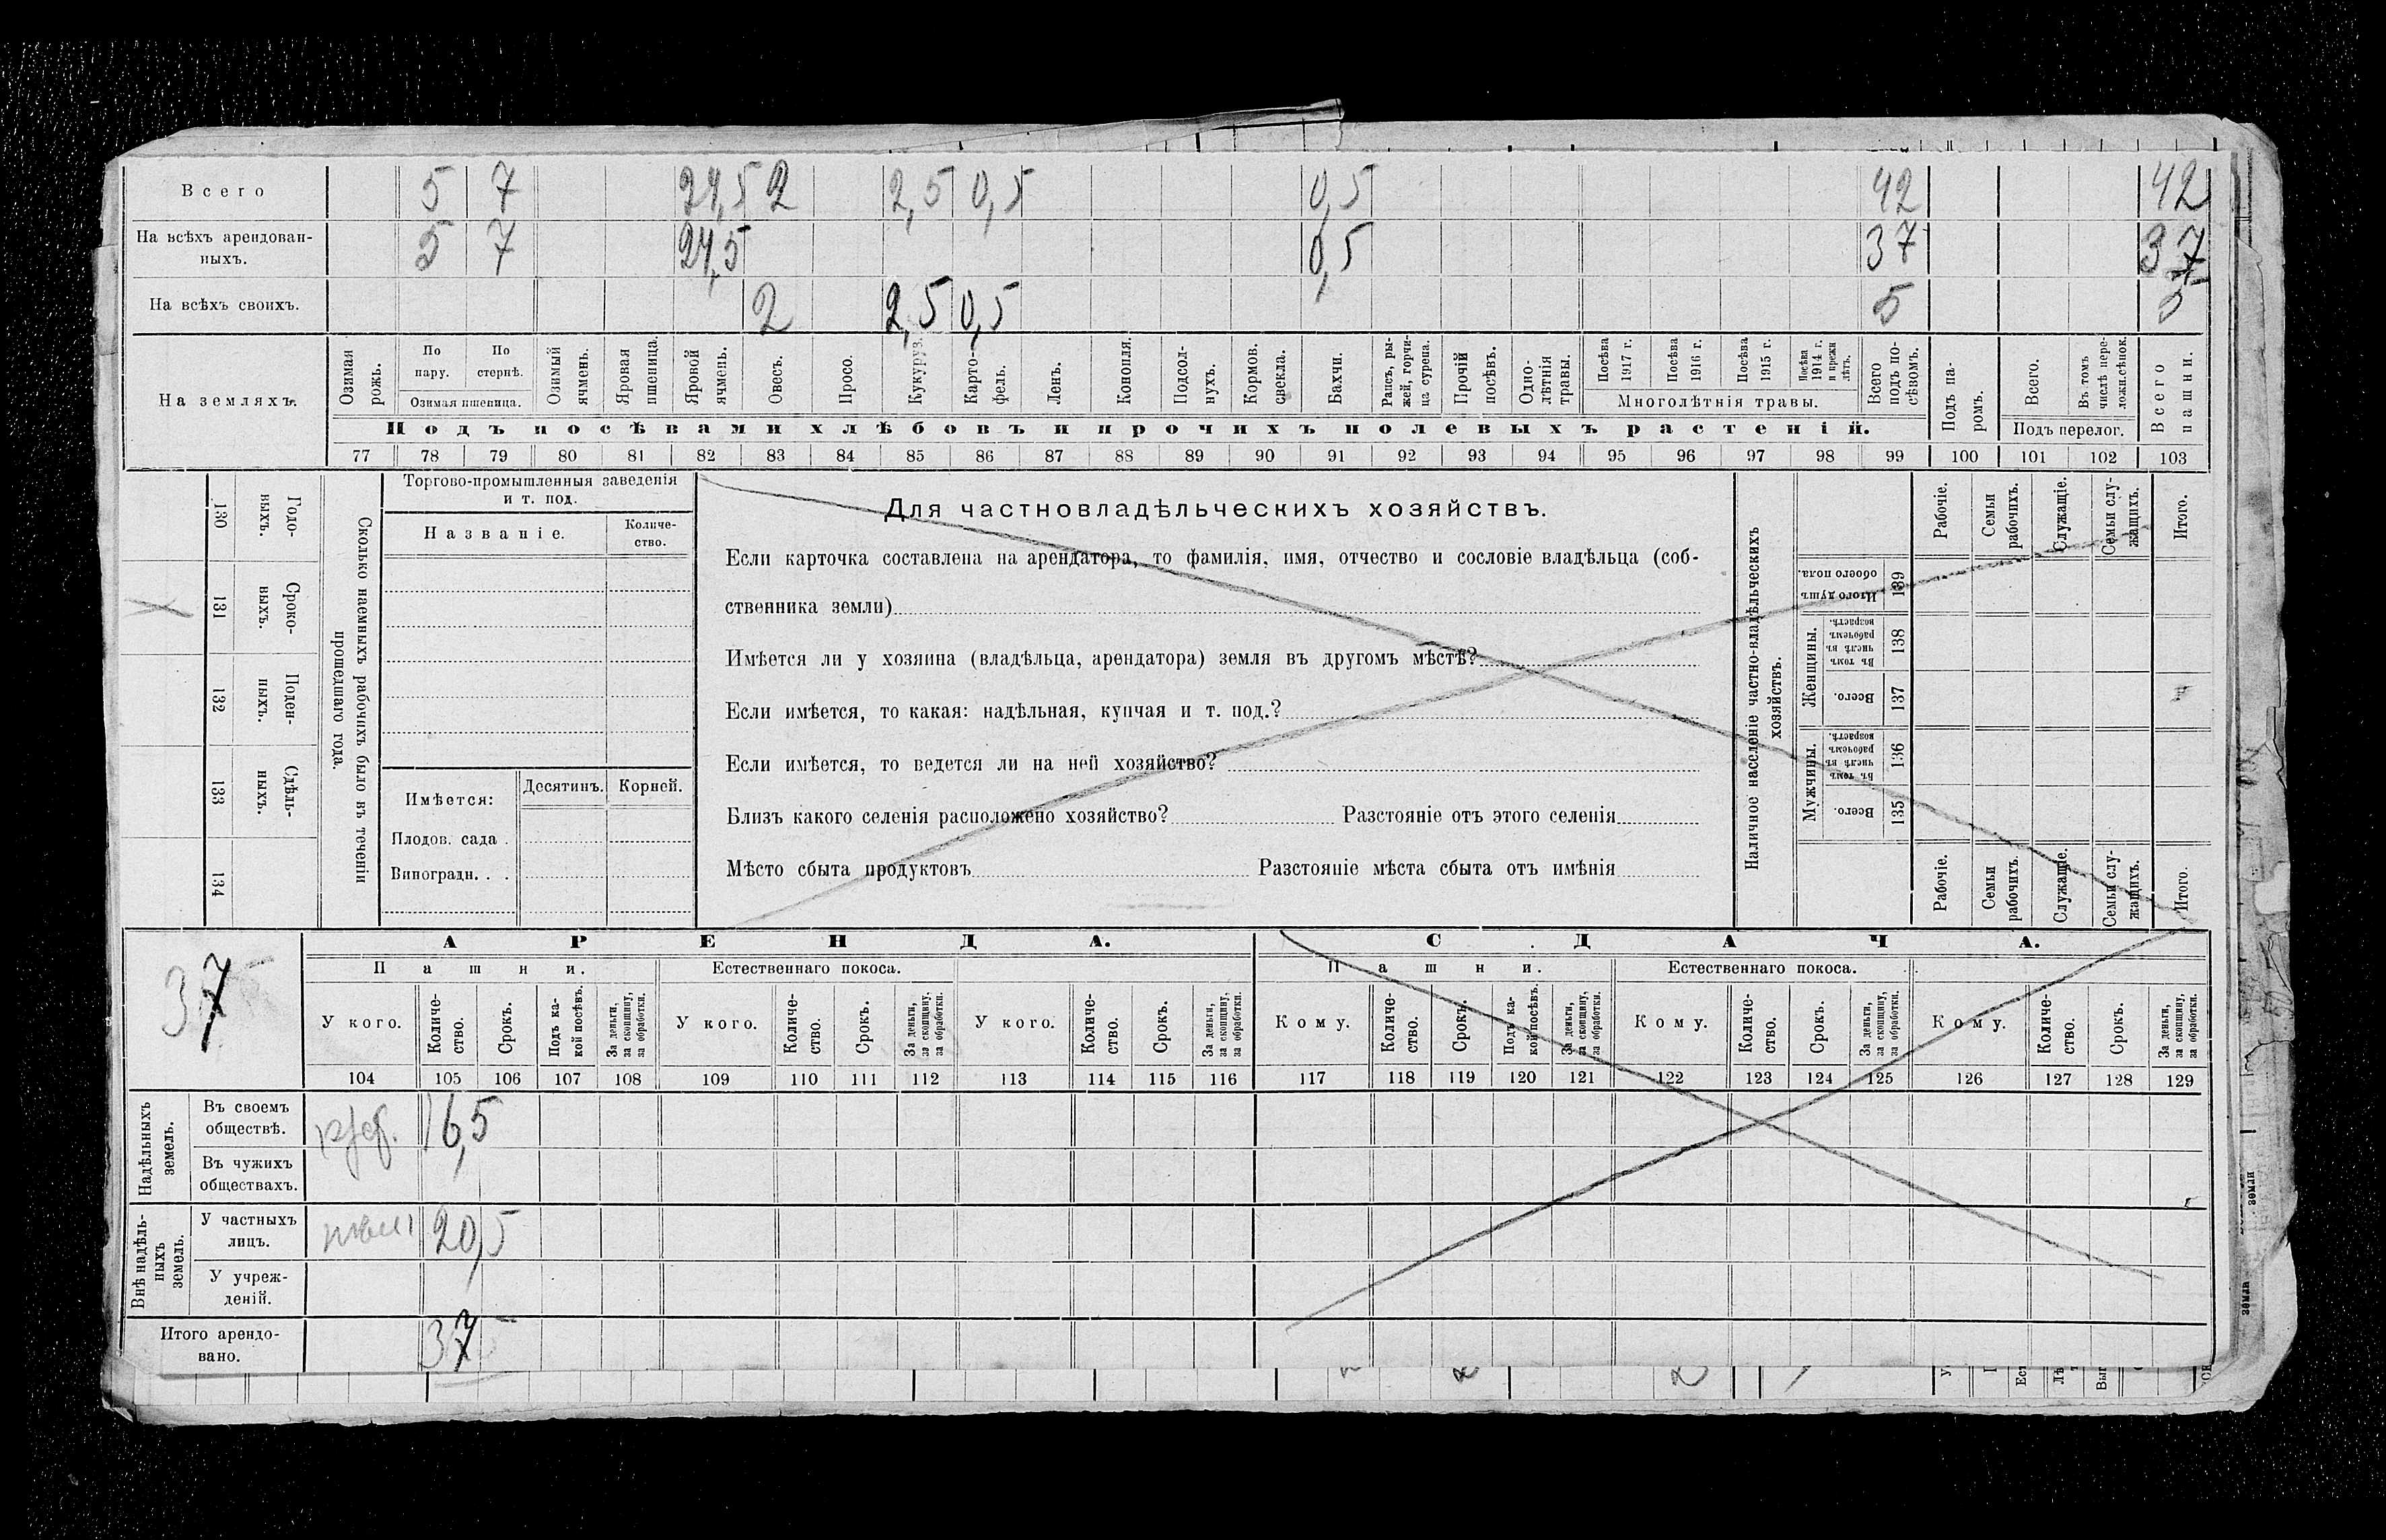 Всего 5 7 24,5 2 2,5 0,5 0,5 42 42
На всѣхъ арендован-
ныхъ. 5 7 24,5 0,5 37 37
На всѣхъ своихъ. 2 2,5 0,5 5 5
На земляхъ.
Озимая рожь.
По пару.
По стернѣ.
Озимая пшеница.
Озимый ячмень.
Яровая пшеница.
Яровой ячмень.
Овесъ.
Просо.
Кукуруз.
Карто-
фель.
Ленъ.
Конопля.
Подсол-
нухъ.
Кормов.
свекла.
Бахчи.
Рапсъ, ры-
жей, горчи-
ца сурепа.
Прочій
посѣвъ.
Одно-
лѣтнія
травы.
Посѣва
1917 г.
Посѣва
1916 г.
Посѣва
1915 г.
Посѣва
1914 г.
и прежн
лѣтъ.
Многолѣтнія травы.
Всего
подъ по-
сѣвомъ.
Подъ па-
ромъ.
Всего.
Въ томъ
числѣ пере-
ложн. сѣнок.
Подъ перелог.
Всего
пашни.
Подъ посѣвами хлѣбовъ и прочихъ полевыхъ растеній.
77 78 79 80 81 82 83 84 85 86 87 88 89 90 91 92 93 94 95 96 97 98 99 100 101 102 103
Годо-
ныхъ.
130
Сроко-
ныхъ.
131
Поден-
ныхъ.
132
Сдѣль-
ныхъ.
133
134
Сколько наемныхъ рабочихъ было въ теченіи
прошедшаго года.
Торгово-промышленныя заведенія
и т. под.
Названіе.
Количе-
ство.
Имѣется:
Десятинъ.
Корней.
Плодов. сада .
Виноградн. . .
Для частновладѣльческихъ хозяйствъ.
Если карточка составлена на арендатора, то фамилія, имя, отчество и сословіе владѣльца (соб-
ственника земли)
Имѣется ли у хозяина (владѣльца, арендатора) земля въ другомъ мѣстѣ?
Если имѣется, то какая: надѣльная, купчая и т. под.?
Если имѣется, то ведется ли на ней хозяйство?
Близъ какого селенія расположено хозяйство? Разстояніе отъ этого селенія
Мѣсто сбыта продуктовъ Разстояніе мѣста сбыта отъ имѣнія
Наличное населеніе частно-владѣльческихъ
хозяйствъ.
Рабочіе.
Семьи
рабочихъ.
Служащіе.
Семьи слу-
жащихъ.
Итого.
Итого душъ
обоего пола.
139
Женщины.
Въ томъ
числѣ въ
рабочемъ
возрастѣ.
138
Всего.
137
Мужчины.
Въ томъ
числѣ въ
рабочемъ
возрастѣ.
136
Всего.
135
Рабочіе.
Семьи
рабочихъ.
Служащіе.
Семьи слу-
жащихъ.
Итого.
37
АРЕНДА.
СДАЧА.
Пашни.
Естественнаго покоса.
Пашни.
Естественнаго покоса.
У кого.
Количе-
ство.
Срокъ.
Подъ ка-
кой посѣвъ.
За деньги,
за скопщину,
за обработки.
У кого.
Количе-
ство.
Срокъ.
За деньги,
за скопщину,
за обработки.
У кого.
Количе-
ство.
Срокъ.
За деньги,
за скопщину,
за обработки.
Кому.
Количе-
ство.
Срокъ.
Подъ ка-
кой посѣвъ.
За деньги,
за скопщину,
за обработки.
Кому.
Количе-
ство.
Срокъ.
За деньги,
за скопщину,
за обработки.
Кому.
Количе-
ство.
Срокъ.
За деньги,
за скопщину,
за обработки.
104 105 106 107 108 109 110 111 112 113 114 115 116 117 118 119 120 121 122 123 124 125 126 127 128 129
Надѣльныхъ
земель.
Въ своемъ
обществѣ. 16,5
Въ чужихъ
обществахъ.
Внѣ надѣль-
ныхъ
земель.
У частныхъ
лицъ. 20,5
У учреж-
деній.
Итого арендо-
вано. 37
земли
земли